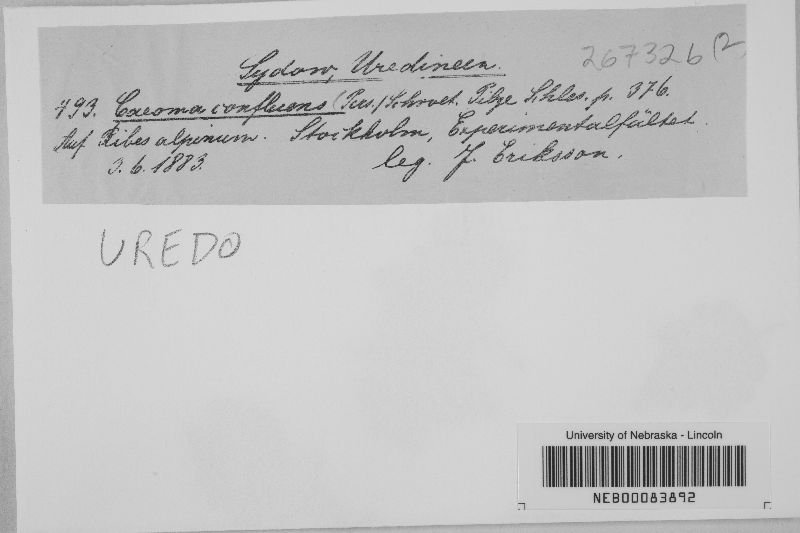 267326 (2
Sydow, Uredineen.
793. Caeoma confluens (Pers.) Schroet. Pilze Schles. p. 376.
Auf Ribes alpinum. Stockholm, Experimentalfältet.
3. 6. 1883. leg. J. Eriksson.
UREDO
University of Nebraska - Lincoln
NEB00083892